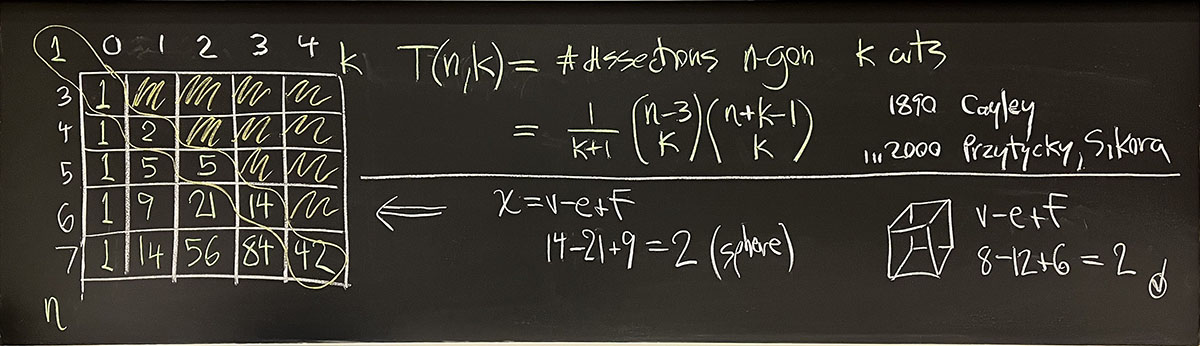 1 0 1 2 3 4 k
3 1
4 1 2
5 1 5 5
6 1 9 21 14
7 1 14 56 84 42
n
T(n,k) = # dissections n-gon k cuts
= 1/(k+1) (n-3 k)(n+k-1 k)
1890 Cayley
...2000 Przytycky, Sikora
⇐ χ=v-e+f
14-21+9=2 (sphere)
v-e+f
8-12+6=2